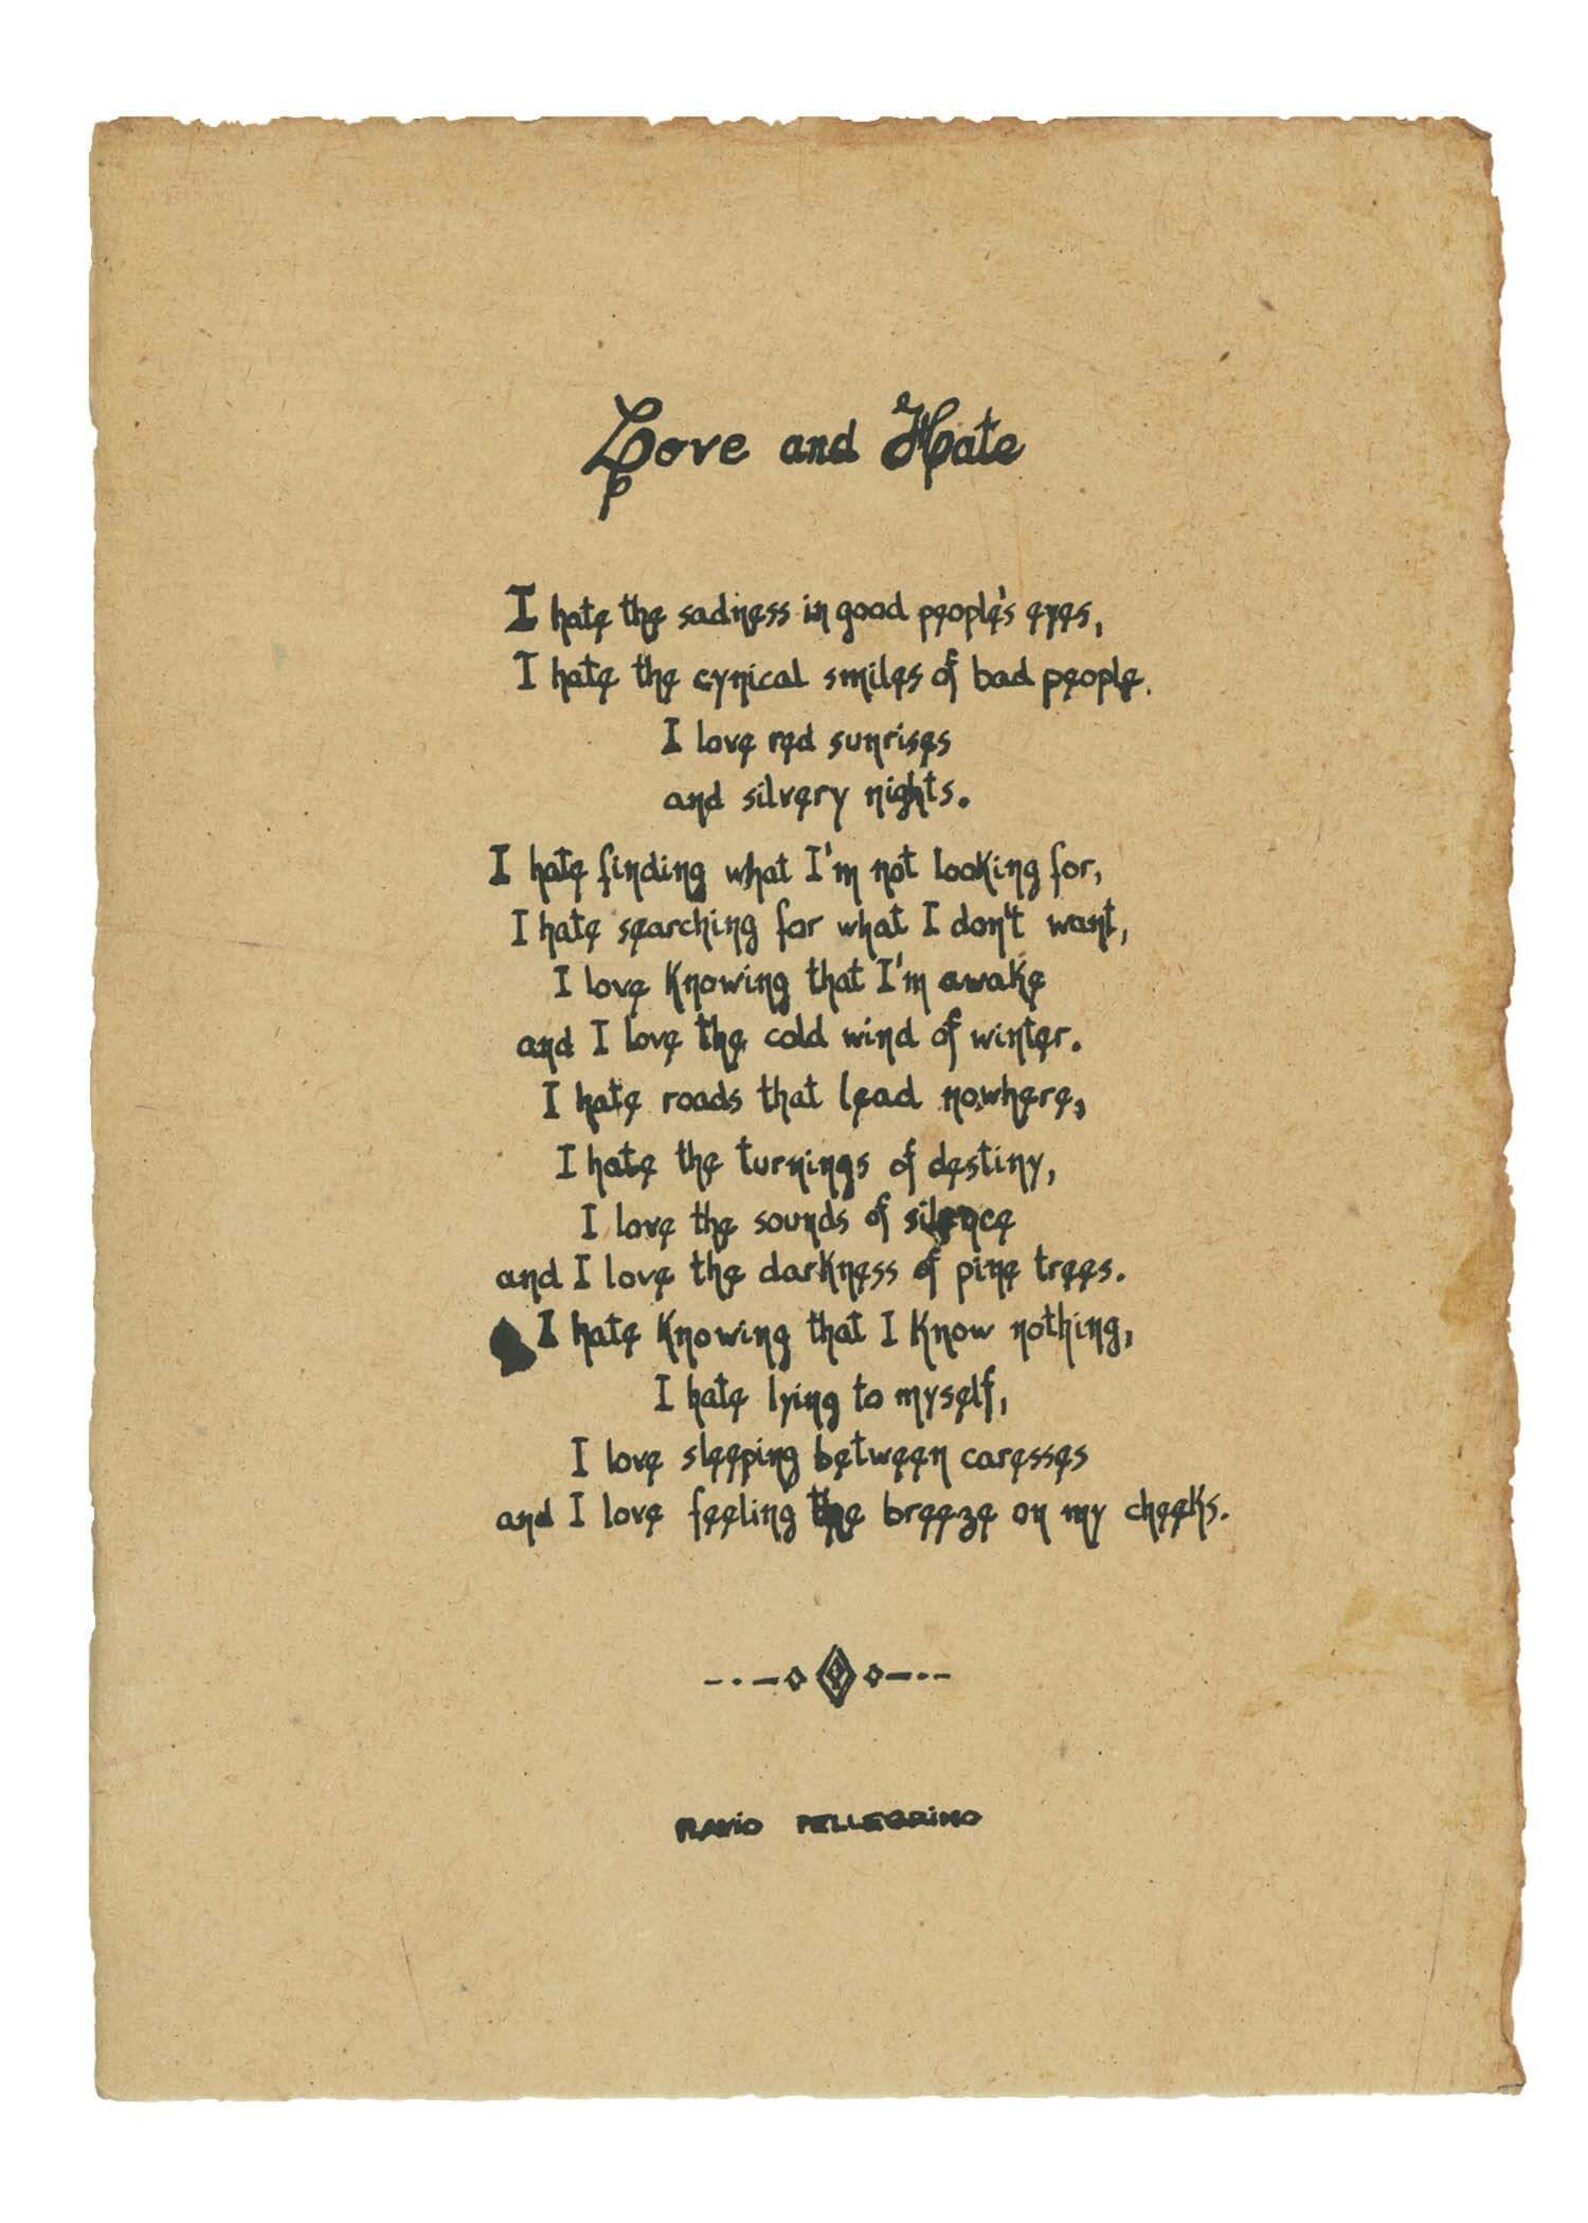 Love and Hate
I hate the sadness in good people's eyes,
I hate the cynical smiles of bad people.
I love red sunrises
and silvery nights.
I hate finding what I'm not looking for,
I hate searching for what I don't want,
I love knowing that I'm awake
and I love the cold wind of winter.
I hate roads that lead nowhere,
I hate the turnings of destiny,
I love the sounds of silence
and I love the darkness of pine trees.
I hate knowing that I know nothing,
I hate lying to myself,
I love sleeping between caresses
and I love feeling the breeze on my cheeks.
FLAVIO PELLEGRINO